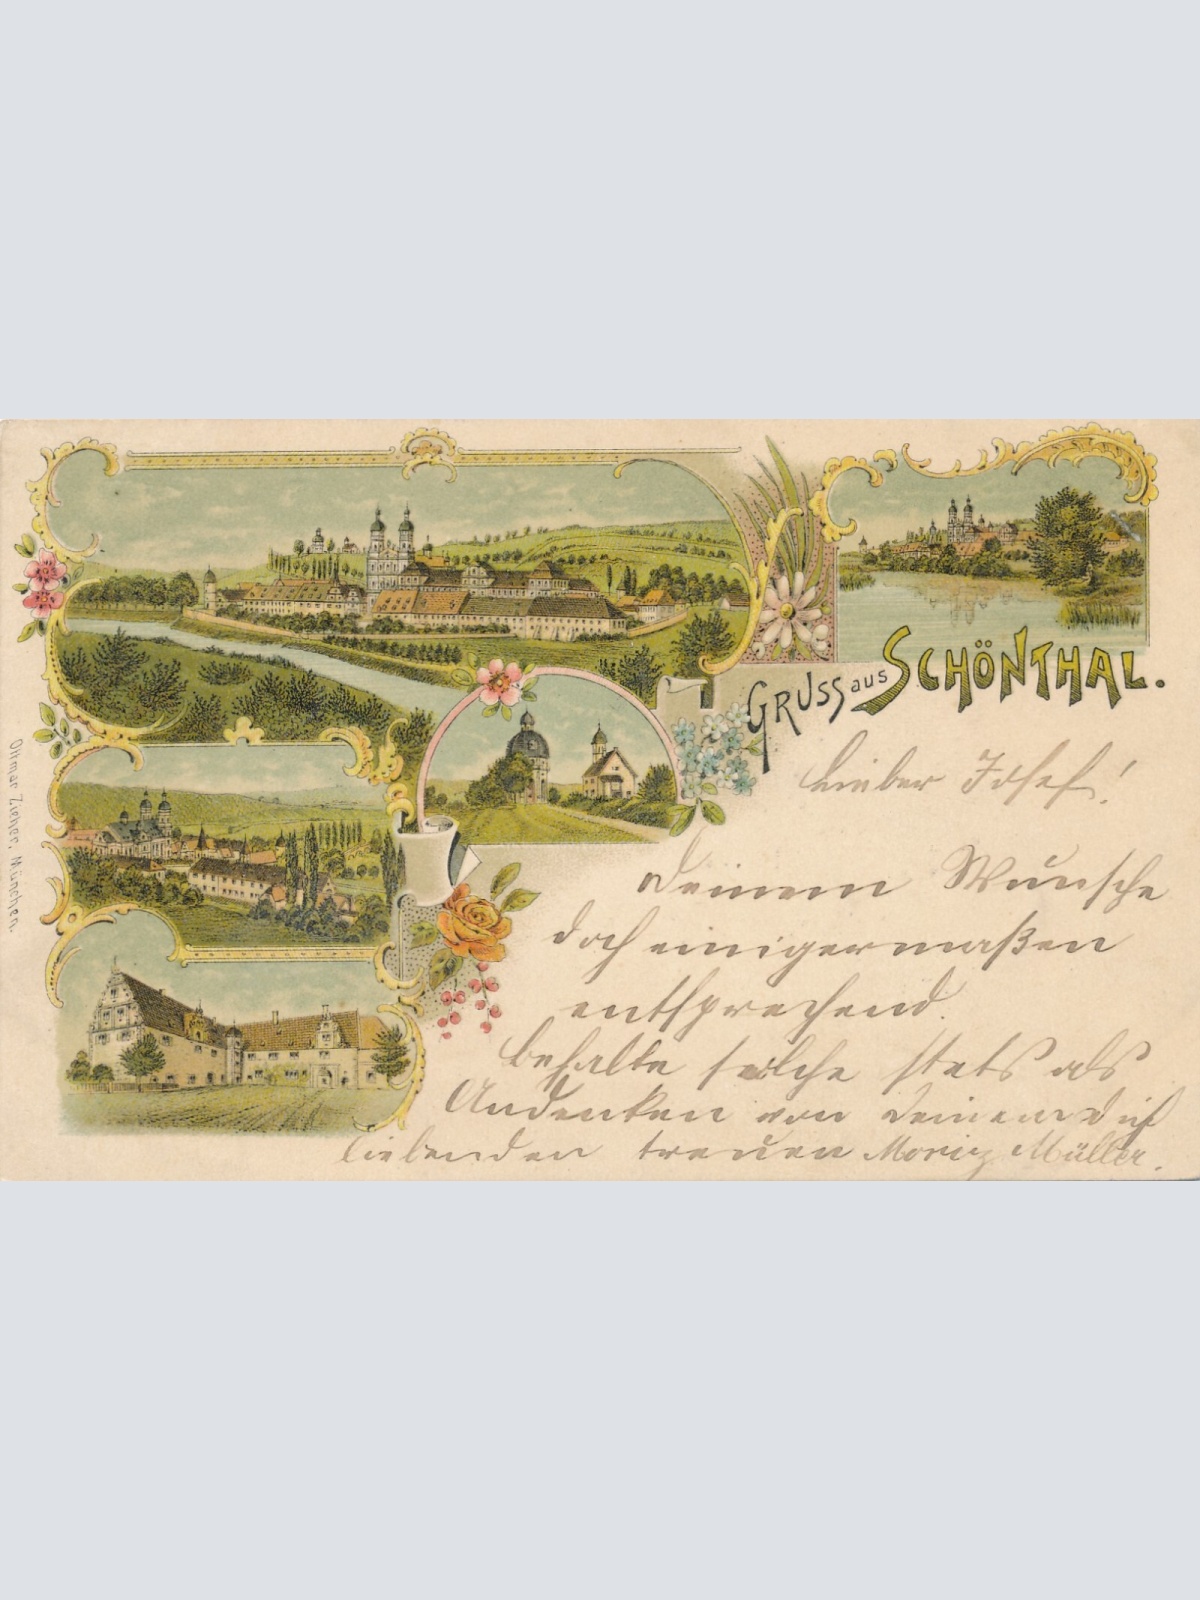 GRUSS aus SCHÖNTHAL.
Lieber Josef!
Deinem Wunsche
doch einigermaßen
entsprechend.
Behalte solche stets als
Andenken von Deinem Dich
liebenden treuen Moriz Müller.
Ottmar Zieher, München.